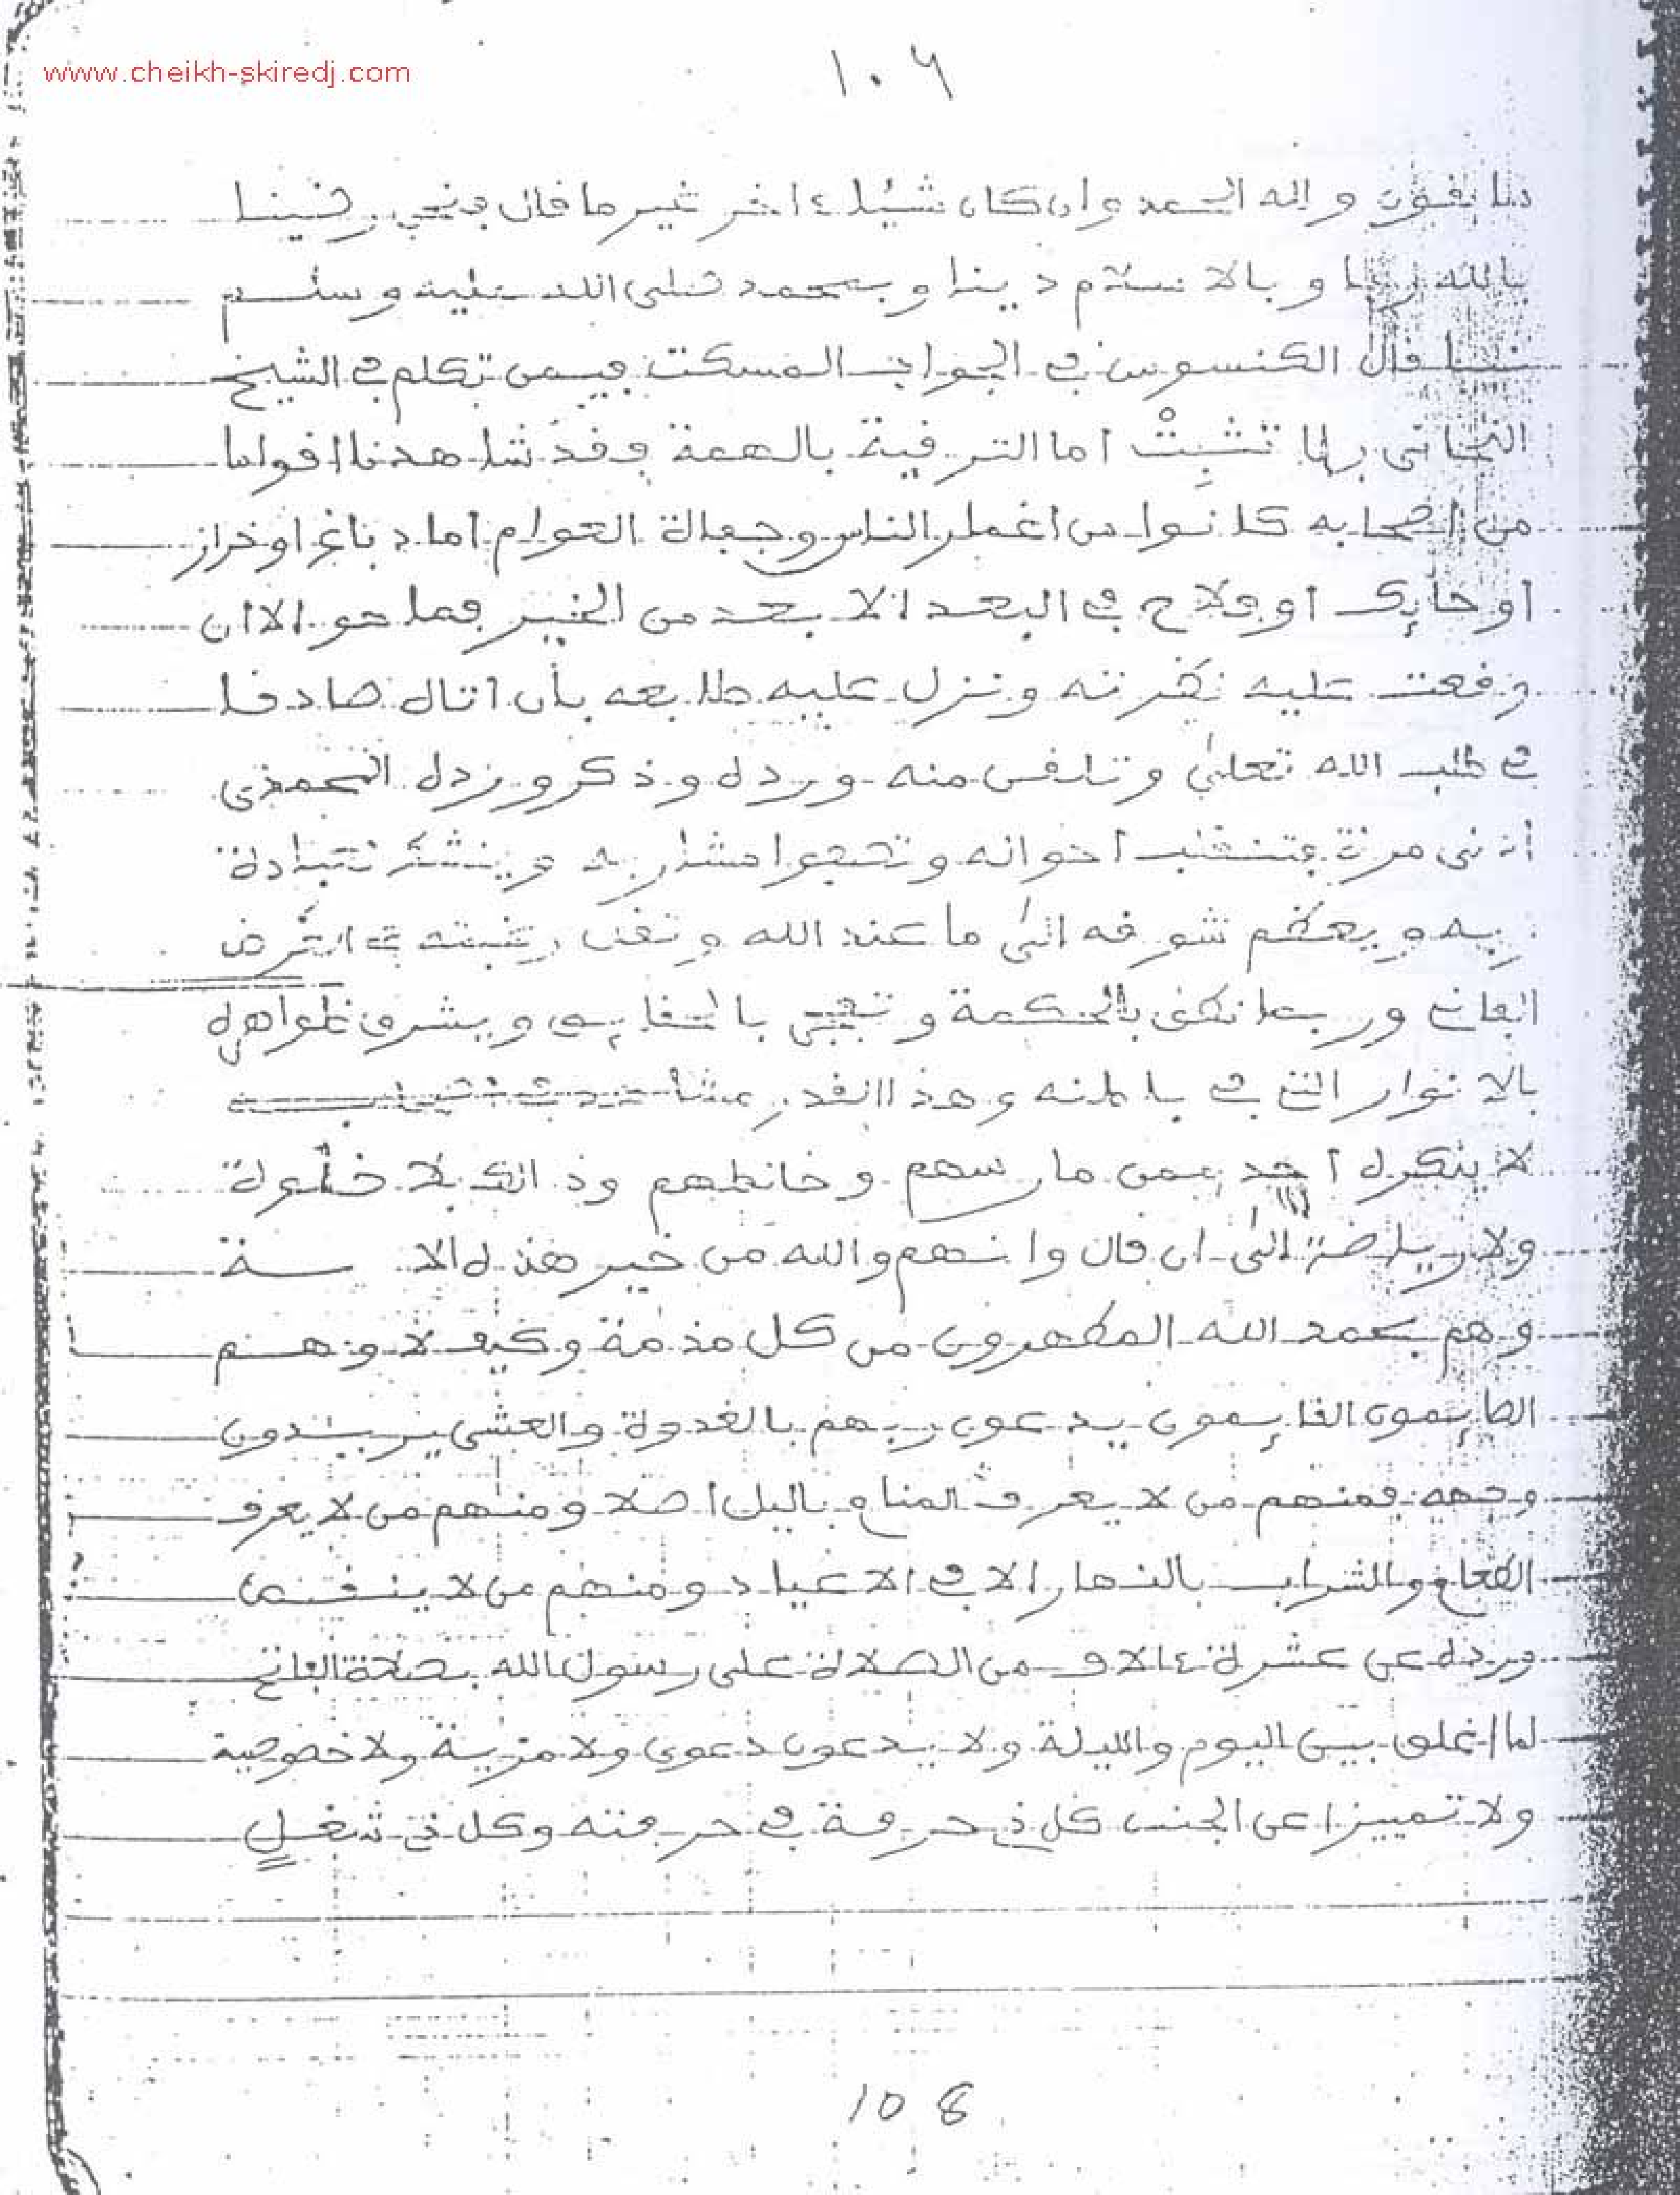 www.cheikh-skiredj.com
١٠٦
بما يقول وله الحمد وان كان شيئا ءاخر غير ما قال فنحن رضينا
بالله ربا وبالاسلام دينا وبمحمد صلى الله عليه وسلم
قال الكنسوسي في الجواب المسكت فيمن تكلم في الشيخ
التجاني بلا تثبت اما الترقية بالهمة وقد شاهدنا اقواما
من اصحابه كانوا من اغمار الناس وجهالة العوام اما دباغ او خراز
او حائك او فلاح في البعد الابعد من الخير فما هو الا ان
وقعت عليه نظرته ونزل عليه طابعه بان اتاه صادقا
في طلب الله تعالى وتلقى منه ورده وذكر ورده المحمدي
ادنى مرة فتنقلب احواله وتصفوا مشاربه وينشط لعبادة
ربه ويعظم شوقه الى ما عند الله وتقل رغبته في العرض
الفاني وربما نطق بالحكمة وتفجر بالحقايق ويشرق ظواهره
بالانوار التي في باطنه وهذا القدر
لا ينكره احد ممن مارسهم وخالطهم وذالك بلا خلوة
ولا رياضة الى ان قال وانهم والله من خير هذه الامة
وهم بحمد الله المطهرون من كل مذمة وكيف لا وهم
الصائمون القائمون يدعون ربهم بالغدوة والعشي يريدون
وجهه فمنهم من لا يعرف المنام باليل اصلا ومنهم من لا يعرف
الطعام والشراب بالنهار الا في الاعياد ومنهم من لا ينقص
ورده عن عشرة ءالاف من الصلاة على رسول الله بصلاة الفاتح
لما اغلق بين اليوم والليلة ولا يدعون دعوى ولا مزية ولا خصوصية
ولا تمييزا عن الجنس كل ذي حرفة في حرفته وكل ذي شغل
108